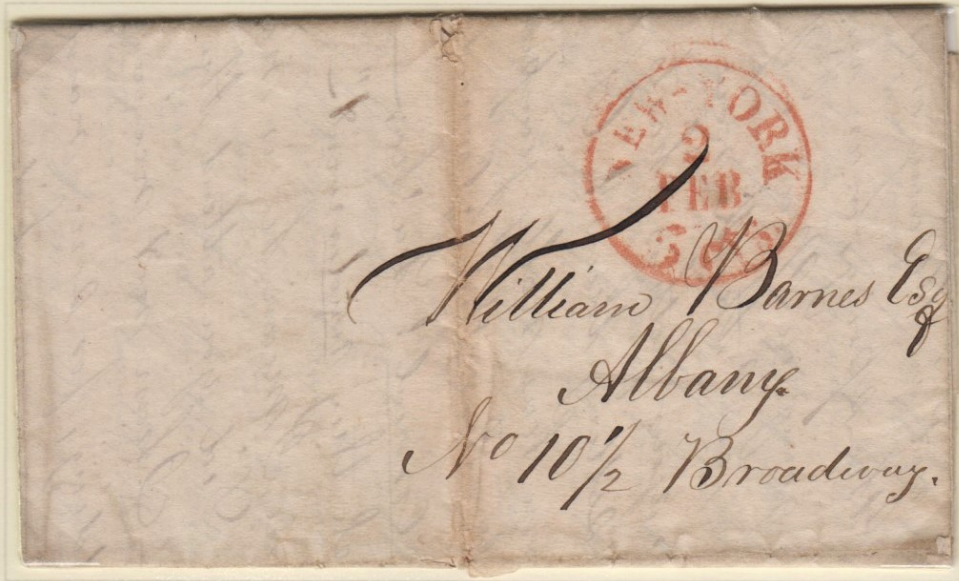 NEW-YORK
2
FEB
5 cts
William Barnes Esq
Albany.
No 10 1/2 Broadway.